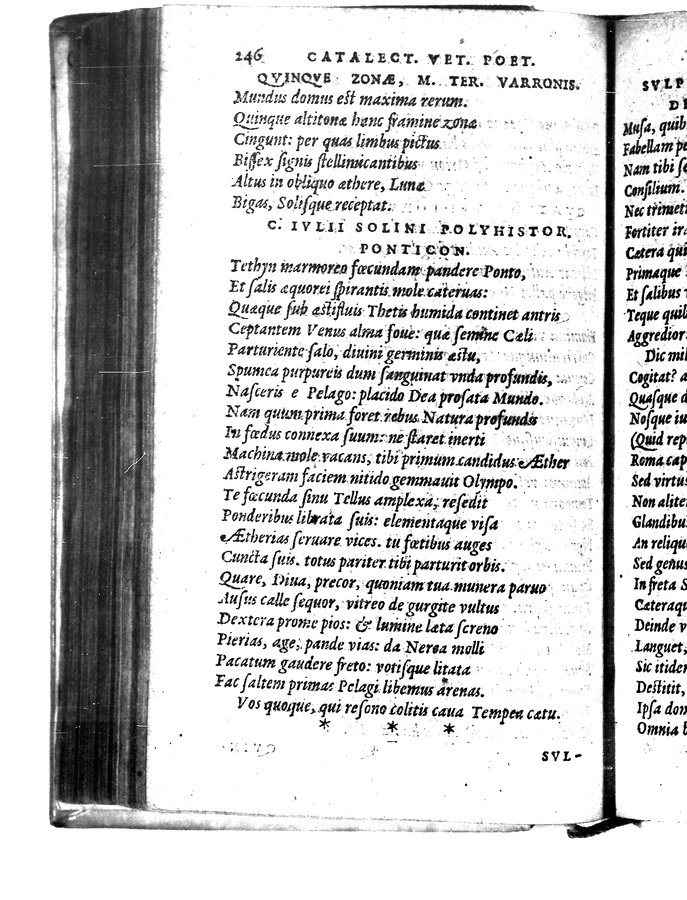 246 CATALECT. VET. POET.
QVINQVE ZONÆ, M. TER. VARRONIS.
Mundus domus est maxima rerum.
Quinque altitonæ hanc framine zonæ
Cingunt: per quas limbus pictus
Bissex signis stellimicantibus
Altus in obliquo æthere, Lunæ
Bigas, Solisque receptat.
C. IVLII SOLINI POLYHISTOR.
PONTICON.
Tethyn marmoreo fœcundam pandere Ponto,
Et salis æquorei spirantis mole cateruas:
Quæque sub æstifluis Thetis humida continet antris
Ceptantem Venus alma foue: quæ semine Cæli
Parturiente salo, diuini germinis æstu,
Spumea purpureis dum sanguinat vnda profundis,
Nasceris e Pelago: placido Dea prosata Mundo.
Nam quum prima foret rebus Natura profundis
In fœdus connexa suum: ne staret inerti
Machina mole vacans, tibi primum candidus Æther
Astrigeram faciem nitido gemmauit Olympo.
Te fœcunda sinu Tellus amplexa, resedit
Ponderibus librata suis: elementaque visa
Ætherias seruare vices. tu fœtibus auges
Cuncta suis. totus pariter tibi parturit orbis.
Quare, Diua, precor, quoniam tua munera paruo
Ausus calle sequor, vitreo de gurgite vultus
Dextera prome pios: & lumine læta sereno
Pierias, age, pande vias: da Nerea molli
Pacatum gaudere freto: votisque litata
Fac saltem primas Pelagi libemus arenas.
Vos quoque, qui resono colitis caua Tempea cœtu.
* * *
SVL-
SVLP
DE
Musa, quib
Fabellam pe
Nam tibi se
Consilium.
Nec trimet
Fortiter ira
Cætera qui
Primaque
Et salibus
Teque quil
Aggredior.
Dic mi
Cogitat? a
Quasque d
Nosque iu
(Quid rep
Roma cap
Sed virtus
Non alite
Glandibu
An reliqu
Sed genus
In freta S
Cæteraq
Deinde v
Languet,
Sic itide
Destitit,
Ipsa dom
Omnia b